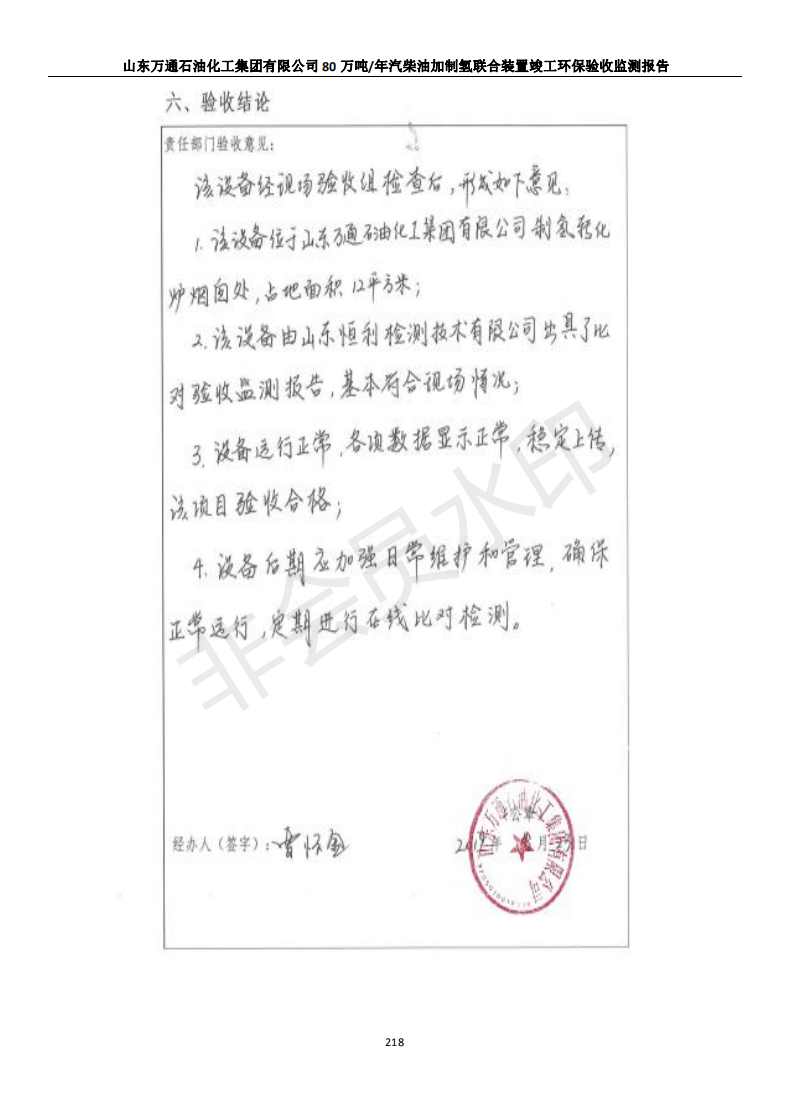 山东万通石油化工集团有限公司 80 万吨/年汽柴油加制氢联合装置竣工环保验收监测报告
六、验收结论
责任部门验收意见：
该设备经现场验收组检查后，形成如下意见：
1. 该设备位于山东万通石油化工集团有限公司制氢转化
炉烟囱处，占地面积12平方米；
2. 该设备由山东恒利检测技术有限公司出具了比
对验收监测报告，基本符合现场情况；
3. 设备运行正常，各项数据显示正常，稳定上传，
该项目验收合格；
4. 设备后期应加强日常维护和管理，确保
正常运行，定期进行在线比对检测。
非会员水印
山东万通石油化工集团有限公司
公章
经办人（签字）：
年 月 日
218